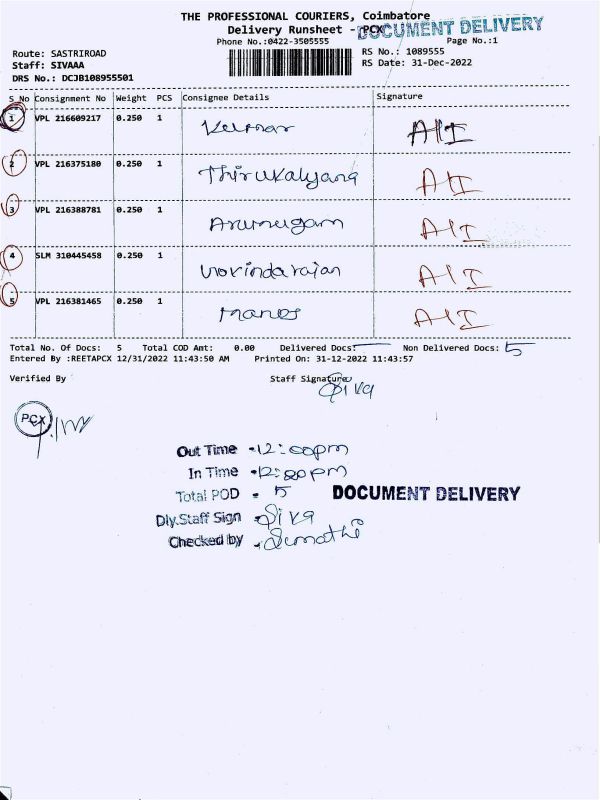 THE PROFESSIONAL COURIERS, Coimbatore
Delivery Runsheet - PCX DOCUMENT DELIVERY
Phone No.:0422-3505555 Page No.:1
Route: SASTRIROAD RS No.: 1089555
Staff: SIVAAA RS Date: 31-Dec-2022
DRS No.: DCJB108955501
S No Consignment No Weight PCS Consignee Details Signature
1 VPL 216609217 0.250 1 Kumar
2 VPL 216375180 0.250 1 Thirukalyana
3 VPL 216388781 0.250 1 Arumugam
4 SLM 310445458 0.250 1 Govindarajan
5 VPL 216381465 0.250 1
Total No. Of Docs: 5 Total COD Amt: 0.00 Delivered Docs: Non Delivered Docs: 5
Entered By :REETAPCX 12/31/2022 11:43:50 AM Printed On: 31-12-2022 11:43:57
Verified By Staff Signature
Siva
PCX
Out Time - 12:00pm
In Time -
Total POD - 5 DOCUMENT DELIVERY
Dly.Staff Sign Siva
Checked by - Sumathi